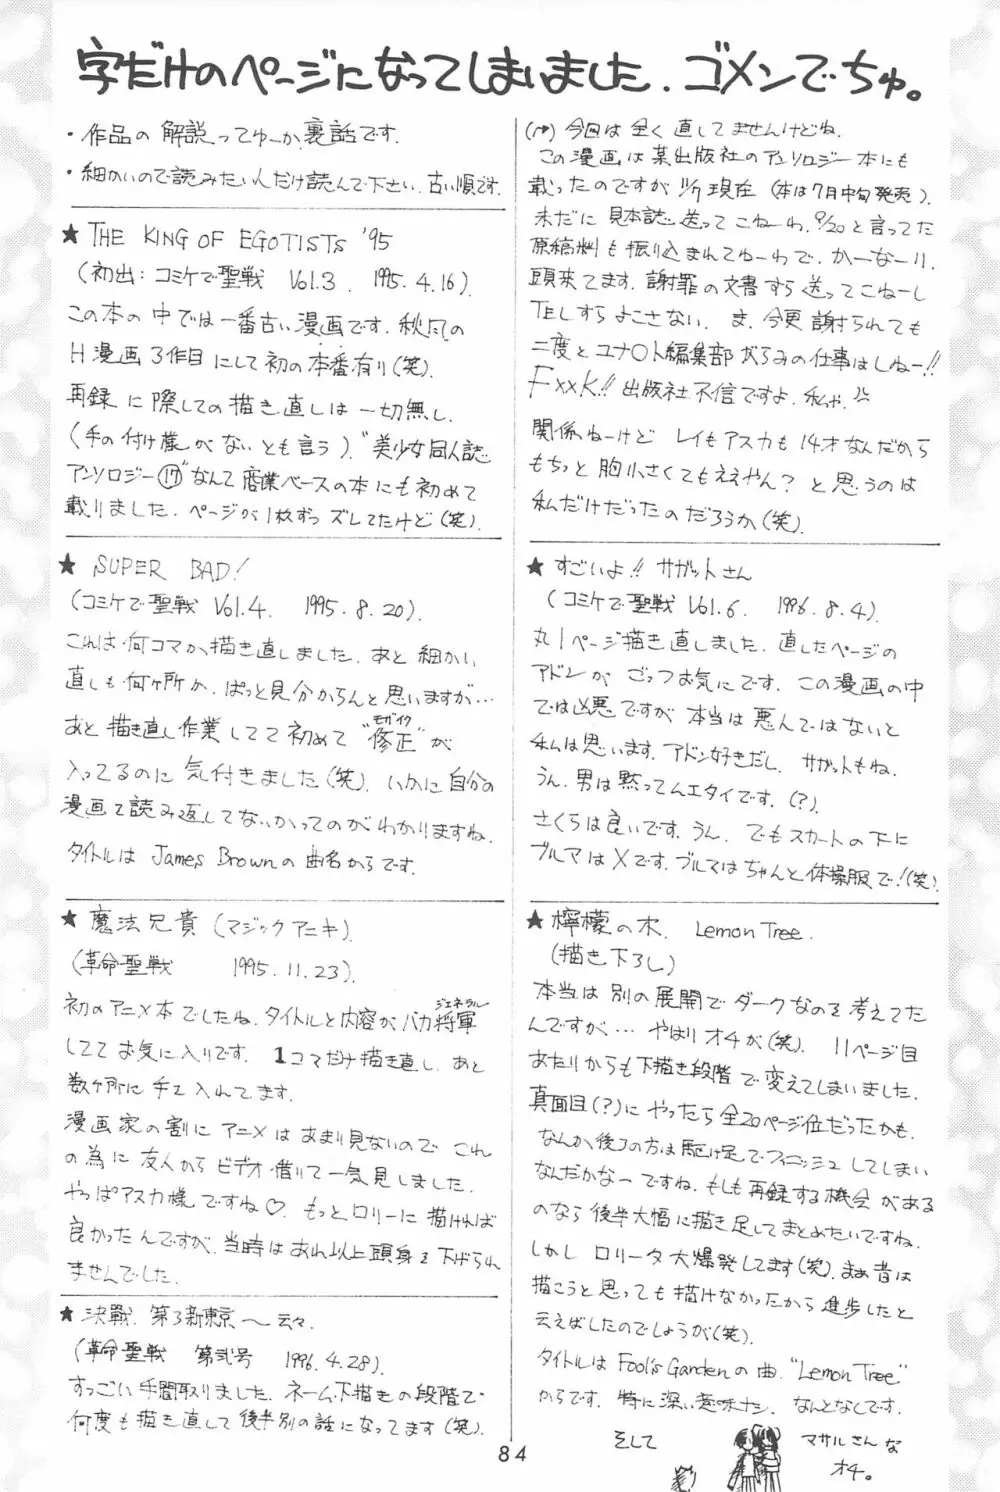 字だけのページになってしまいました.ゴメンでちゅ。
・作品の解説ってゆーか,裏話です.
・細かいので読みたい人だけ読んで下さい.古い順です.
★ THE KING OF EGOTISTS '95
(初出:コミケで聖戦 Vol.3. 1995.4.16).
この本の中では一番古い漫画です.秋風の
H漫画3作目にして初の本番有り(笑).
再録に際しての描き直しは一切無し.
(手の付け様がないとも言う)"美少女同人誌
アンソロジー⑰"なんて商業ベースの本にも初めて
載りました.ページが1枚ずつズレてたけど(笑).
★ SUPER BAD!
(コミケで聖戦 Vol.4. 1995.8.20).
これは何コマか描き直しました.あと細かい
直しも何ヶ所か.ぱっと見分からんと思いますが…
あと描き直し作業してて初めて"修正"が
モザイク
入ってるのに気付きました(笑).いかに自分の
漫画を読み返してないかってのがわかりますね.
タイトルは James Brownの曲名からです.
★ 魔法兄貴(マジックアニキ).
(革命聖戦 1995.11.23).
初のアニメ本でしたね.タイトルと内容がバカ将軍
ジェネラル
してて お気に入りです. 1コマだけ描き直し.あと
数ヶ所に手を入れてます.
漫画家の割にアニメはあまり見ないので これ
の為に友人からビデオ借りて一気見しました.
やっぱアスカ様ですね♡.もっとロリーに描ければ
良かったんですが,当時はあれ以上頭身を下げられ
ませんでした.
★ 決戦.第3新東京〜云々.
(革命聖戦 第弐号 1996.4.28).
すっごい手間取りました.ネーム,下描きの段階で
何度も描き直して後半別の話になってます(笑).
(↗)今回は全く直してませんけどね.
この漫画は某出版社のアンソロジー本にも
載ったのですが 現在(本は7月中旬発売).
未だに見本誌送ってこねーわ.と言ってた
原稿料も振り込まれてねーわで,かーなーり.
頭来てます.謝罪の文書すら送ってこねーし
TELすらよこさない.ま,今更謝られても
二度とユナ○ト編集部がらみの仕事はしねー!!
F××K!! 出版社不信ですよ.私ゃ.
関係ねーけど レイもアスカも14才なんだから
もちっと胸小さくてもええやん?と思うのは
私だけだったのだろうか(笑).
★ すごいよ!! サガットさん
(コミケで聖戦 Vol.6. 1996.8.4).
丸1ページ描き直しました.直したページの
アドンが ごっつお気にです.この漫画の中
では凶悪ですが本当は悪人ではないと
私は思います.アドン好きだし.サガットもね.
うん.男は黙ってムエタイです.(?).
さくらは良いです.うん.でもスカートの下に
ブルマは×です.ブルマはちゃんと体操服で!(笑).
★ 檸檬の木. Lemon Tree.
(描き下ろし)
本当は別の展開でダークなのを考えてた
んですが… やはりオチが(笑). 11ページ目
あたりからも下描き段階で変えてしまいました.
真面目(?)にやったら全20ページ位だったかも.
なんか後ろの方は駆け足でフィニッシュしてしまい
なんだかなーですね.もしも再録する機会がある
のなら後半大幅に描き足してまとめたいですね.
しかし ロリータ大爆発してます(笑).まあ昔は
描こうと思っても描けなかったから進歩したと
云えばしたのでしょうが(笑).
タイトルは Fool's Gardenの曲."Lemon Tree"
からです. 特に深い意味ナシ. なんとなしです.
そして
マサルさんな
オチ。
84